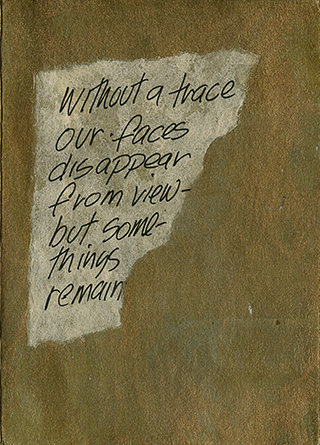 Without a trace
our faces
disappear
from view-
but some-
things
remain